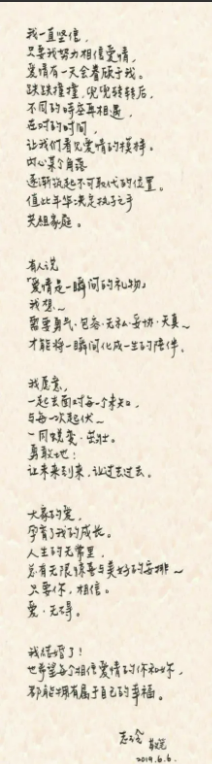 我一直坚信，
只要我努力相信爱情，
爱情有一天会眷顾于我。
跌跌撞撞，兜兜转转后，
不同的时空再相遇，
在对的时间，
让我们看见爱情的模样。
内心某个角落
逐渐筑起不可取代的位置。
值此年华决定执子之手
共组家庭。
有人说
「爱情是一瞬间的礼物」
我想~
需要勇气·包容·无私·妥协·天真~
才能将一瞬间化成一生的陪伴。
我愿意，
一起去面对每一个未知，
与每一次起伏~
一同蜕变·茁壮。
勇敢地：
让未来到来，让过去过去。
大家的爱，
孕育了我的成长。
人生的无常里，
总有无限惊喜与美好的安排~
只要你，相信。
爱·无碍。
我结婚了！
也希望每个相信爱情的你和妳，
都能拥有属于自己的幸福。
志玲
2019.6.6.